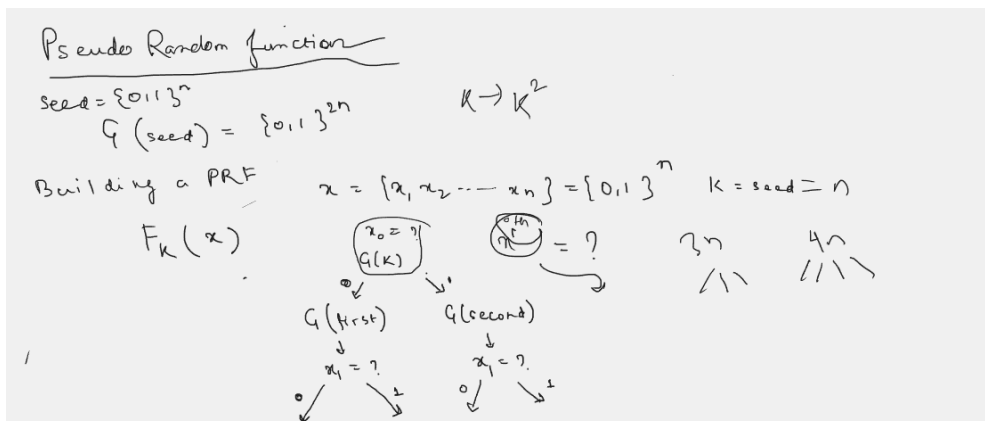 Pseudo Random function
seed = {0,1}^n
G (seed) = {0,1}^2n
K → K^2
Building a PRF
x = {x1 x2 ---- xn} = {0,1}^n K = seed = n
F_K(x)
x0 = ?
G(K)
= ?
3n
4n
0
1
G(first)
G(second)
x1 = ?
x1 = ?
0
1
0
1